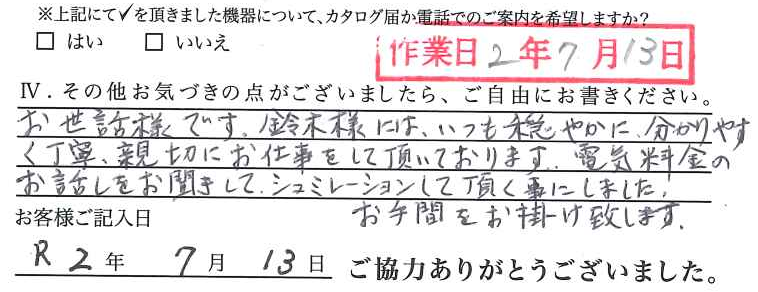 ※上記にて✓を頂きました機器について、カタログ届か電話でのご案内を希望しますか?
□ はい □ いいえ
作業日2年7月13日
Ⅳ.その他お気づきの点がございましたら、ご自由にお書きください。
お世話様です。鈴木様には、いつも穏やかに、分かりやす
く丁寧、親切にお仕事をして頂いております。電気料金の
お話しをお聞きして、シュミレーションして頂く事にしました。
お手間をお掛け致します。
お客様ご記入日
R2年 7月 13日 ご協力ありがとうございました。